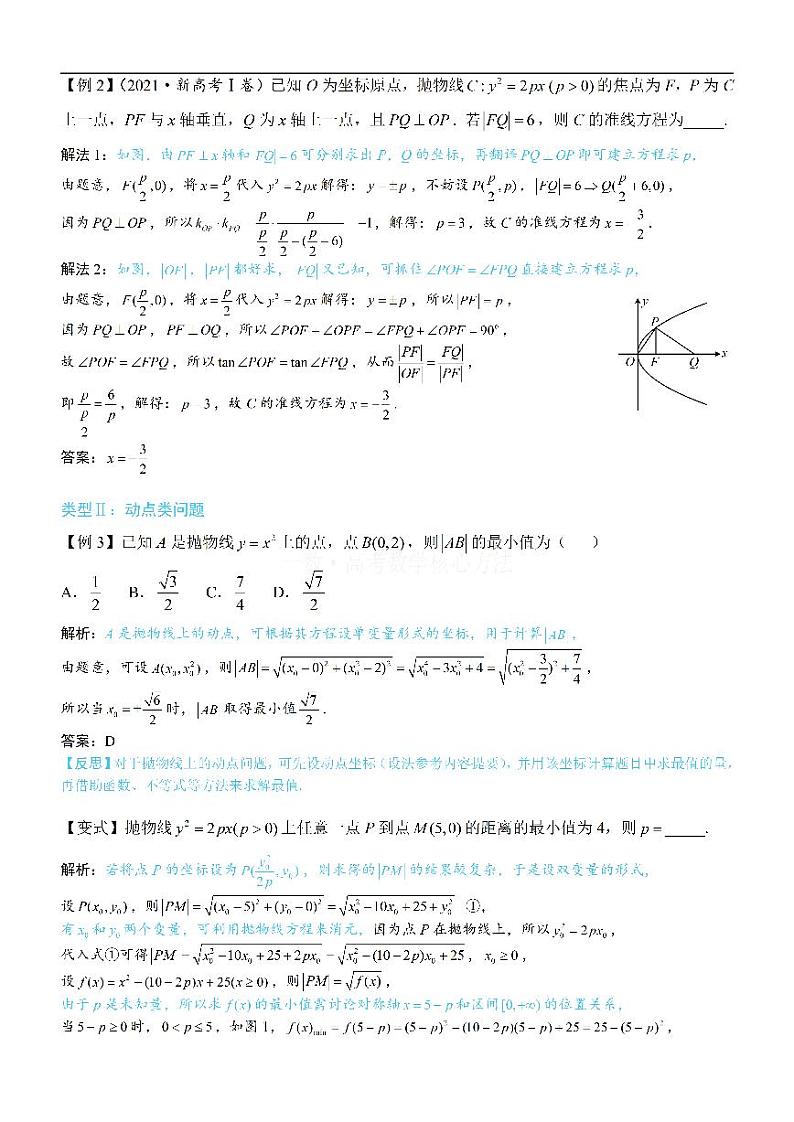 【例2】（2021·新高考Ⅰ卷）已知 O 为坐标原点，抛物线 C: y² = 2px (p > 0) 的焦点为 F，P 为 C
上一点，PF 与 x 轴垂直，Q 为 x 轴上一点，且 PQ ⊥ OP．若 |FQ| = 6，则 C 的准线方程为_____．
解法1：如图，由 PF ⊥ x 轴和 |FQ| = 6 可分别求出 P，Q 的坐标，再翻译 PQ ⊥ OP 即可建立方程求 p，
由题意，F(p/2, 0)，将 x = p/2 代入 y² = 2px 解得：y = ±p，不妨设 P(p/2, p)，|FQ| = 6 ⇒ Q(p/2 + 6, 0)，
因为 PQ ⊥ OP，所以 k_OP · k_PQ = p/(p/2) · p/(p/2 − (p/2 − 6)) = −1，解得：p = 3，故 C 的准线方程为 x = −3/2．
解法2：如图，|OF|，|PF| 都好求，|FQ| 又已知，可抓住 ∠POF = ∠FPQ 直接建立方程求 p，
由题意，F(p/2, 0)，将 x = p/2 代入 y² = 2px 解得：y = ±p，所以 |PF| = p，
因为 PQ ⊥ OP，PF ⊥ OQ，所以 ∠POF + ∠OPF = ∠FPQ + ∠OPF = 90°，
故 ∠POF = ∠FPQ，所以 tan∠POF = tan∠FPQ，从而 |PF|/|OF| = |FQ|/|PF|，
即 p/(p/2) = 6/p，解得：p = 3，故 C 的准线方程为 x = −3/2．
y
P
O F Q x
答案：x = −3/2
类型Ⅱ：动点类问题
【例3】已知 A 是抛物线 y = x² 上的点，点 B(0,2)，则 |AB| 的最小值为（ ）
一数·高考数学核心方法
A．1/2 B．√3/2 C．7/4 D．√7/2
解析：A 是抛物线上的动点，可根据其方程设单变量形式的坐标，用于计算 |AB|，
由题意，可设 A(x₀, x₀²)，则 |AB| = √((x₀ − 0)² + (x₀² − 2)²) = √(x₀⁴ − 3x₀² + 4) = √((x₀² − 3/2)² + 7/4)，
所以当 x₀ = ±√6/2 时，|AB| 取得最小值 √7/2．
答案：D
【反思】对于抛物线上的动点问题，可先设动点坐标（设法参考内容提要），并用该坐标计算题目中求最值的量，
再借助函数、不等式等方法来求解最值．
【变式】抛物线 y² = 2px(p > 0) 上任意一点 P 到点 M(5,0) 的距离的最小值为 4，则 p = _____．
解析：若将点 P 的坐标设为 P(y₀²/2p, y₀)，则求得的 |PM| 的结果较复杂，于是设双变量的形式，
设 P(x₀, y₀)，则 |PM| = √((x₀ − 5)² + (y₀ − 0)²) = √(x₀² − 10x₀ + 25 + y₀²) ①，
有 x₀ 和 y₀ 两个变量，可利用抛物线方程来消元，因为点 P 在抛物线上，所以 y₀² = 2px₀，
代入式①可得 |PM| = √(x₀² − 10x₀ + 25 + 2px₀) = √(x₀² − (10 − 2p)x₀ + 25)，x₀ ≥ 0，
设 f(x) = x² − (10 − 2p)x + 25(x ≥ 0)，则 |PM| = √f(x)，
由于 p 是未知量，所以求 f(x) 的最小值需讨论对称轴 x = 5 − p 和区间 [0, +∞) 的位置关系，
当 5 − p ≥ 0 时，0 < p ≤ 5，如图1，f(x)min = f(5 − p) = (5 − p)² − (10 − 2p)(5 − p) + 25 = 25 − (5 − p)²，